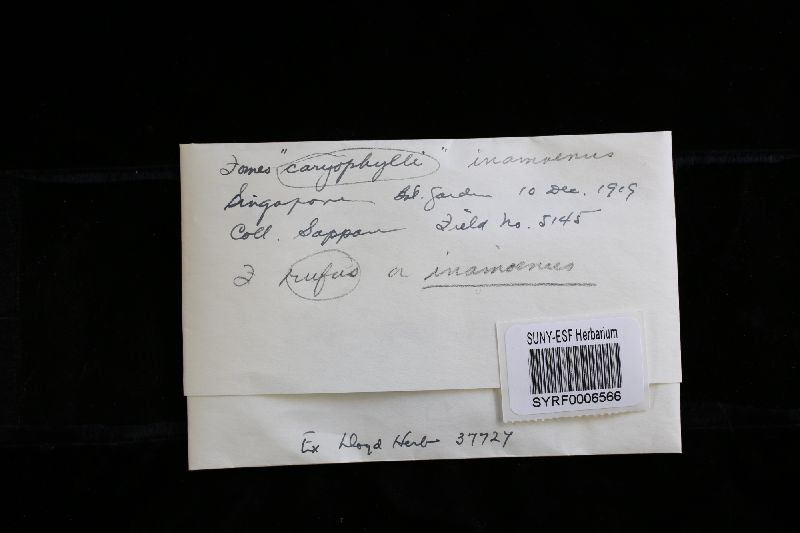 Fomes "caryophylli" inamoenus
Singapore Bot. Garden 10 Dec. 1919
Coll. Sappan Field No. 5145
F rufus or inamoenus
SUNY-ESF Herbarium
SYRF0006566
Ex Lloyd Herb 37727